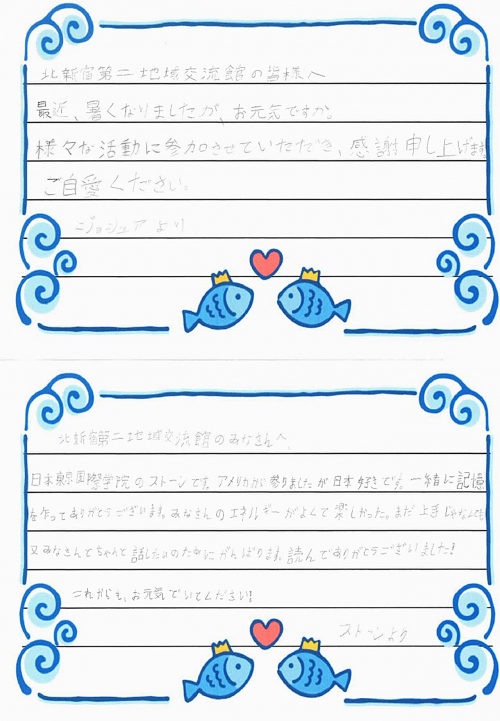 北新宿第二地域交流館の皆様へ
最近、暑くなりましたが、お元気ですか。
様々な活動に参加させていただき、感謝申し上げます
ご自愛ください。
ジョシュアより
北新宿第二地域交流館のみなさんへ、
日本東京国際学院のストーンです。アメリカから参りましたが日本好きです。一緒に記憶
を作ってありがとうございます。みなさんのエネルギーがよくて楽しかった。まだ上手じゃなくても
又みなさんとちゃんと話したいのためにがんばります。読んでありがとうございました!
これからも、お元気でいてください!
ストーンより